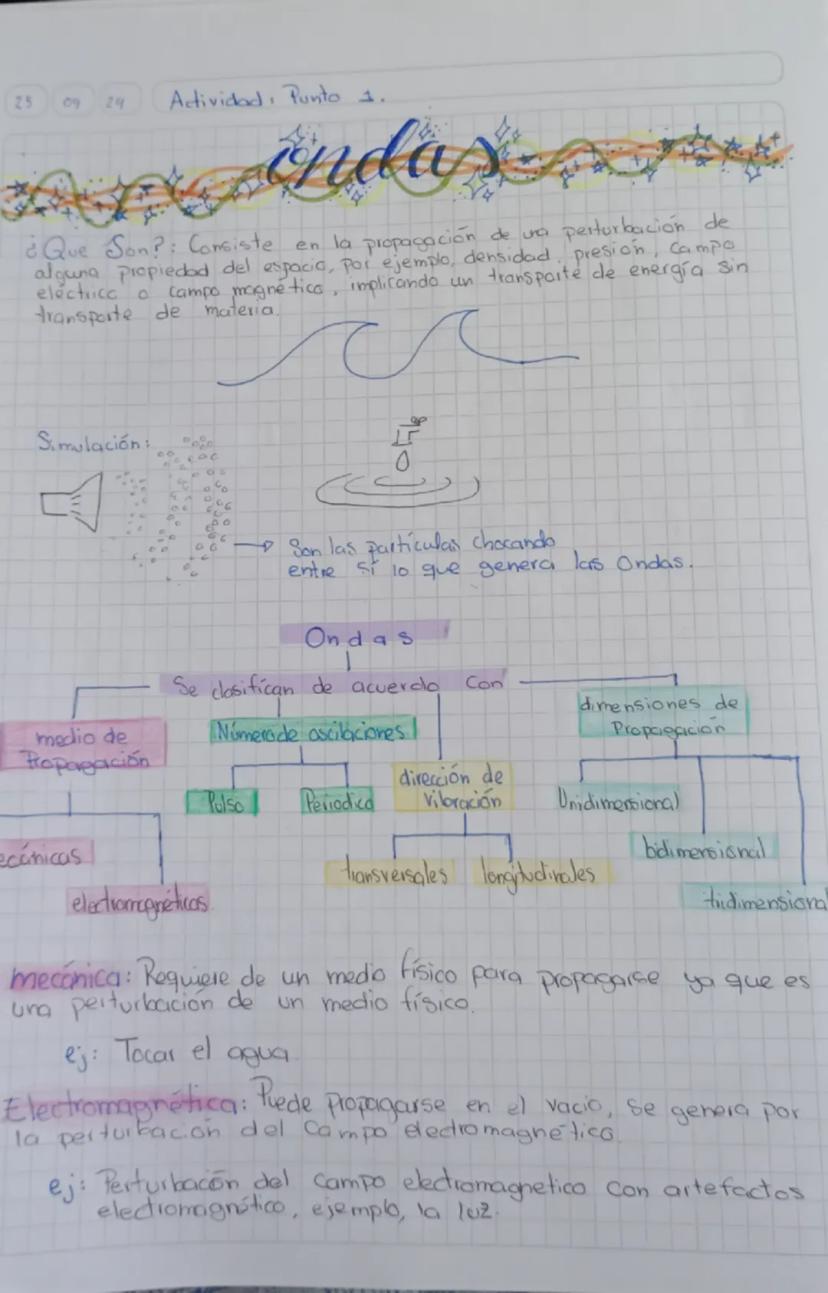 25 09 24 Actividad, Punto 1.
ondas
¿Que Son?: Consiste en la propagación de una perturbación de
alguna propiedad del espacio, por ejemplo, densidad, presión, campo
eléctrico o campo magnético, implicando un transporte de energía sin
transporte de materia.
Simulación:
Son las partículas chocando
entre sí lo que genera las Ondas.
Ondas
Se clasifican de acuerdo con
medio de
Propagación
Número de oscilaciones
dimensiones de
Propagación
Pulso
Periodica
dirección de
Vibración
Unidimensional
ecánicas
electromagnéticas
transversales
longitudinales
bidimensional
tridimensional
mecánica: Requiere de un medio físico para propagarse ya que es
una perturbacion de un medio físico.
ej: Tocar el agua
Electromagnética: Puede propagarse en el vacio, se genera por
la perturbación del Campo electromagnético.
ej: Perturbación del campo electromagnetico con artefactos
electromagnético, ejemplo, la luz.